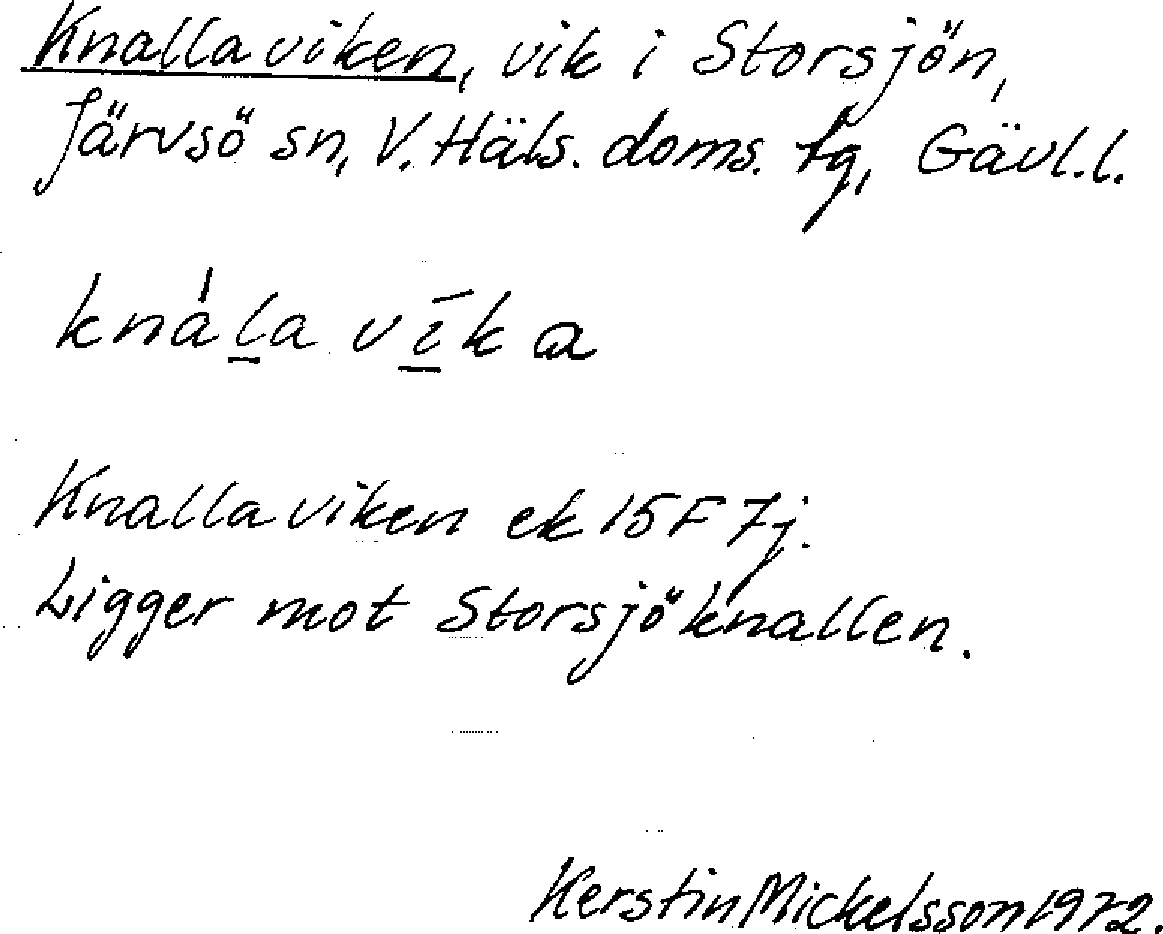 Knallaviken, vik i Storsjön,
Järvsö sn, V. Häls. doms. tg, Gävl.l.
knàl̲a vī̲ka
Knallaviken ek 15F 7j.
Ligger mot Storsjöknallen.
Kerstin Mickelsson 1972.